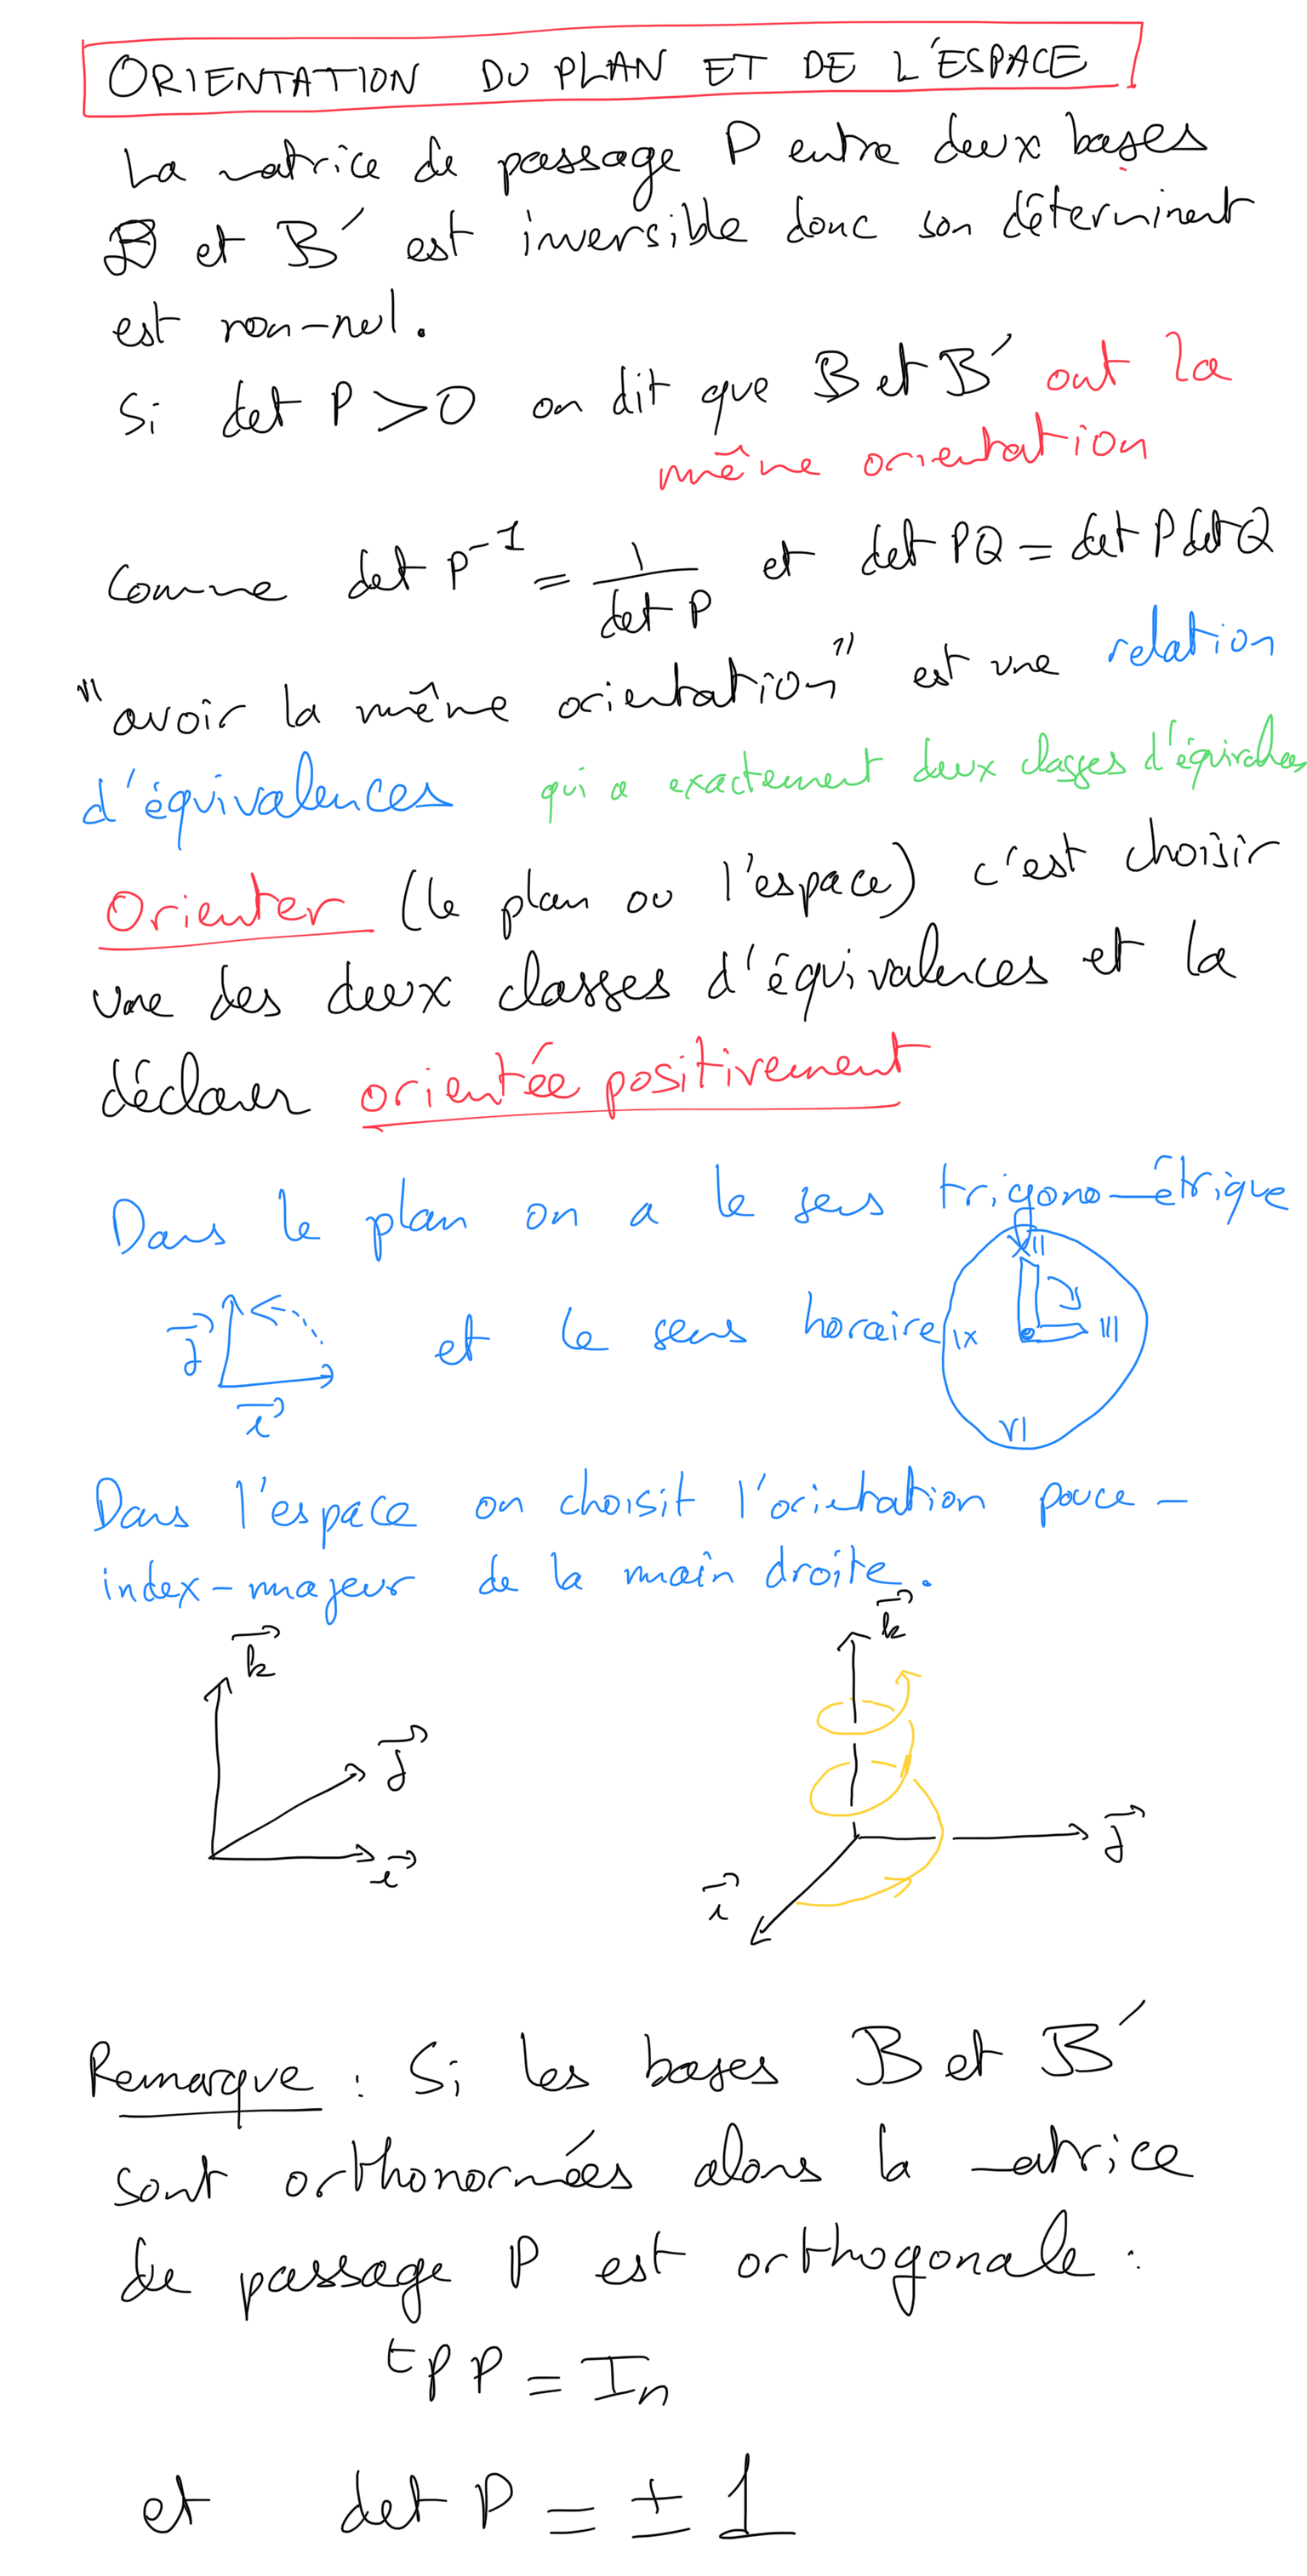 ORIENTATION DU PLAN ET DE L'ESPACE
La matrice de passage P entre deux bases
B et B' est inversible donc son déterminant
est non-nul.
Si det P > 0 on dit que B et B' ont la
même orientation
Comme det P⁻¹ = 1/det P et det PQ = det P det Q
"avoir la même orientation" est une relation
d'équivalences qui a exactement deux classes d'équivalences
Orienter (le plan ou l'espace) c'est choisir
une des deux classes d'équivalences et la
déclarer orientée positivement
Dans le plan on a le sens trigonométrique
j i et le sens horaire XII III VI IX
Dans l'espace on choisit l'orientation pouce-
index-majeur de la main droite.
k j i
k j i
Remarque : Si les bases B et B'
sont orthonormées alors la matrice
de passage P est orthogonale :
ᵗP P = Iₙ
et det P = ± 1